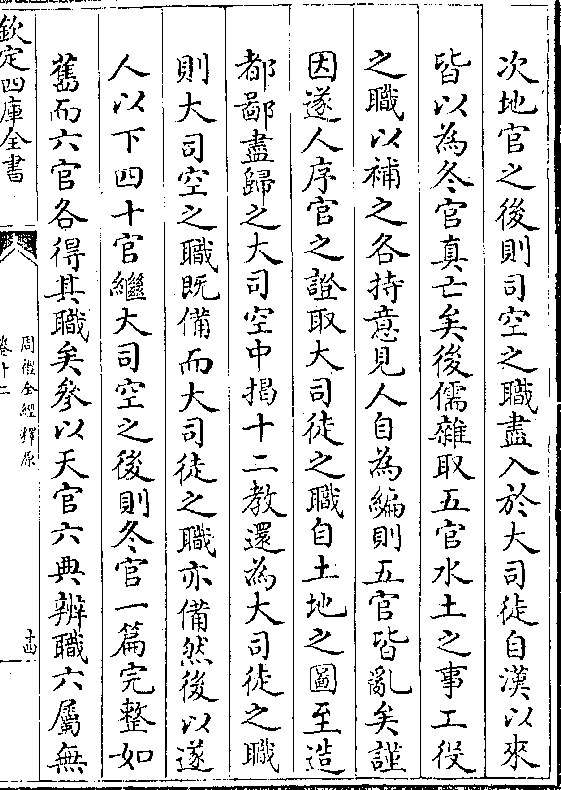 次地官之後則司空之職盡入於大司徒自漢以來
皆以為冬官真亡矣後儒雜取五官水土之事工役
之職以補之各持意見人自為編則五官皆亂矣謹
因遂人序官之證取大司徒之職自土地之圖至造
都鄙盡歸之大司空中揭十二教還為大司徒之職
則大司空之職既備而大司徒之職亦備然後以遂
人以下四十官繼大司空之後則冬官一篇完整如
舊而六官各得其職矣參以天官六典辨職六屬無
欽定四庫全書
周禮全經釋原
卷十二
十四